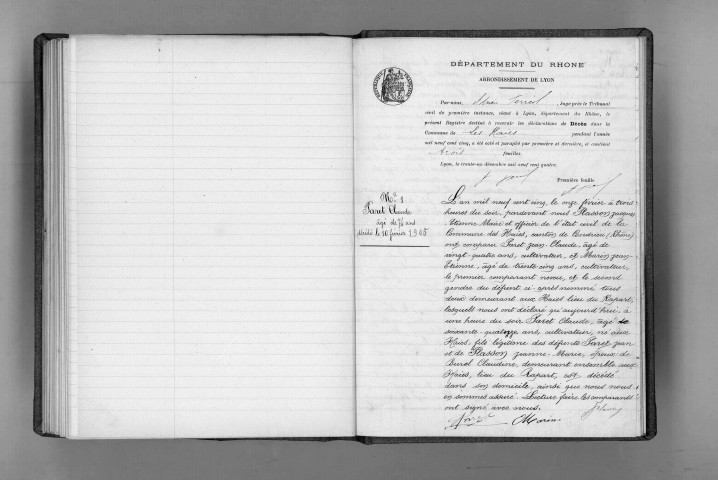 DÉPARTEMENT DU RHÔNE
ARRONDISSEMENT DE LYON
Par nous, Juge près le Tribunal
civil de première instance, séant à Lyon, département du Rhône, le
présent Registre destiné à recevoir les déclarations de Décès dans la
Commune de Les Haies pendant l'année
mil neuf cent cinq, a été coté et paraphé par première et dernière, et contient
trois feuilles.
Lyon, le trente-un décembre mil neuf cent quatre.
Première feuille
N° 1
Paret Claude
âgé de 74 ans
décédé le février 1905
L'an mil neuf cent cinq, le onze février à trois
heures du soir, pardevant nous Plasson Jacques
Etienne Maire et officier de l'état civil de la
Commune des Haies, canton de Condrieu (Rhône)
ont comparu Paret Jean-Claude, âgé de
vingt-quatre ans, cultivateur, et Marin Jean-
Etienne, âgé de trente-cinq ans, cultivateur,
le premier comparant neveu, et le second
gendre du défunt ci-après nommé tous
deux demeurant aux Haies lieu du Rapart,
lesquels nous ont déclaré qu'aujourd'hui, à
une heure du soir Paret Claude, âgé de
soixante-quatorze ans, cultivateur, né aux
Haies, fils légitime des défunts Paret Jean
et de Plasson Jeanne-Marie, époux de
Burel Claudine, demeurant ensemble aux
Haies, lieu du Rapart, est décédé
dans son domicile, ainsi que nous nous
en sommes assuré. Lecture faite les comparants
ont signé avec nous.
Marin